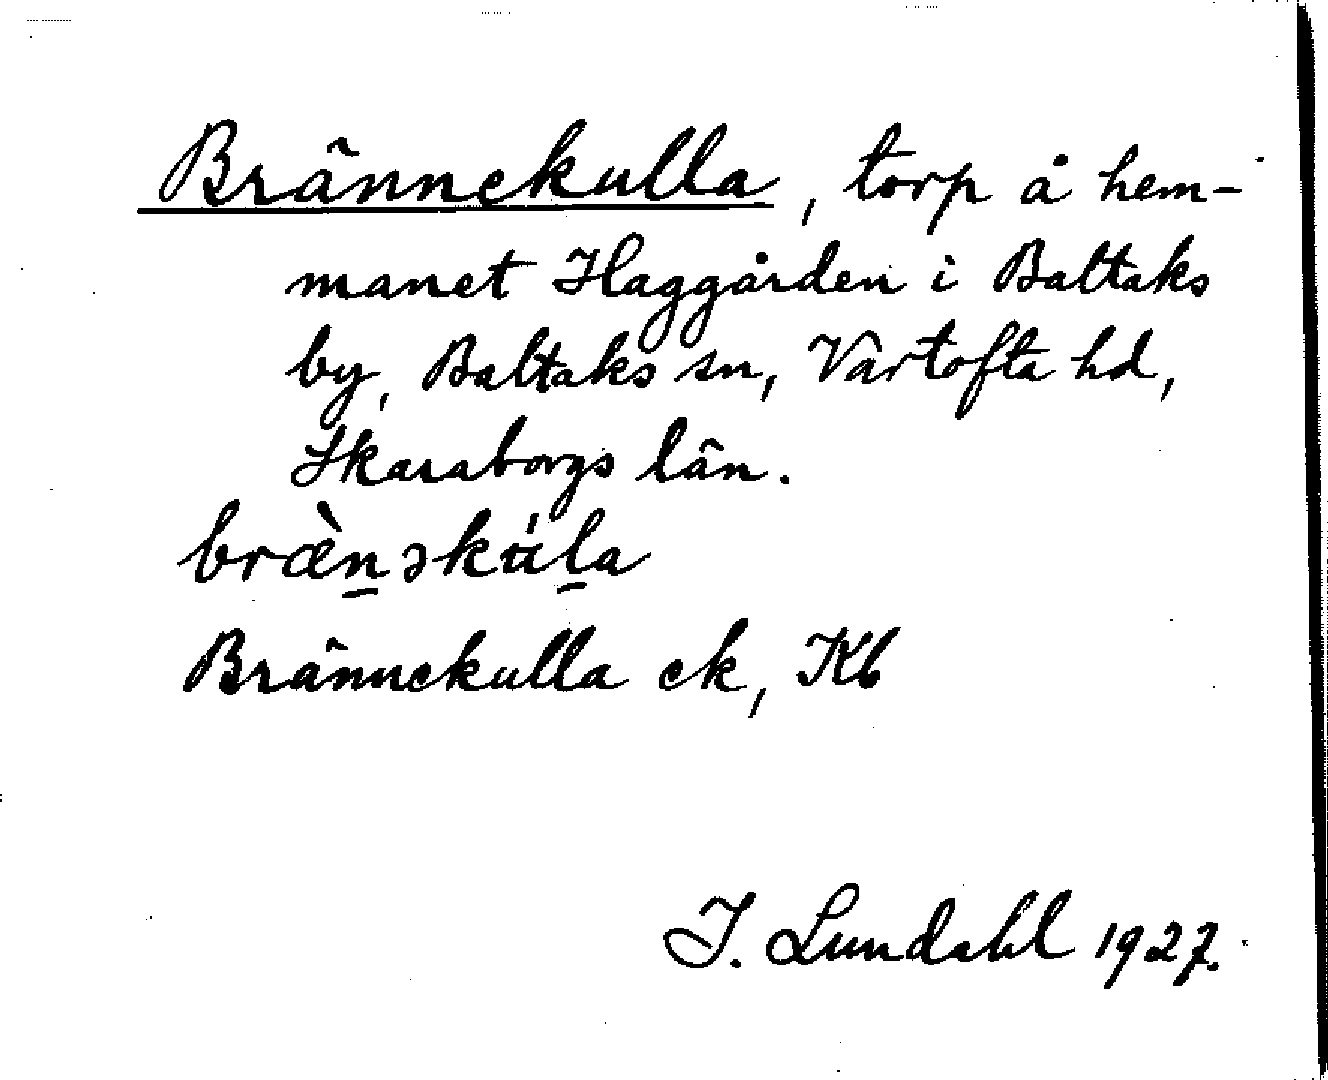 Brännekulla, torp å hem-
manet Haggården i Baltaks
by, Baltaks sn, Vartofta hd,
Skaraborgs län.
bræ̀n̠əkúl̠a
Brännekulla ek, Kb
I. Lundahl 1927.